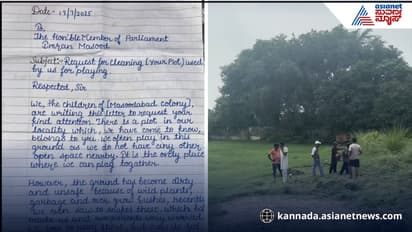 Date:- 13/7/2025
To
The Hon'ble Member of Parliament
Imran Masood
Subject:- Request for Cleaning (Your Plot) used
by us for playing.
Respected, Sir
We, the children of (Masoodabad colony),
are writing this letter to request your
kind attention. There is a plot in our
locality which, we have come to know,
belongs to you we often play in this
ground as we do not have any other
open space nearby. It is the only place
where we can play together.
However, the ground has become dirty
and unsafe because of wild plants,
garbage and over grow bushes, recently
we even saw to snakes there which has
made us and
asianet
ಸುವರ್ಣ ನ್ಯೂಸ್
kannada.asianetnews.com